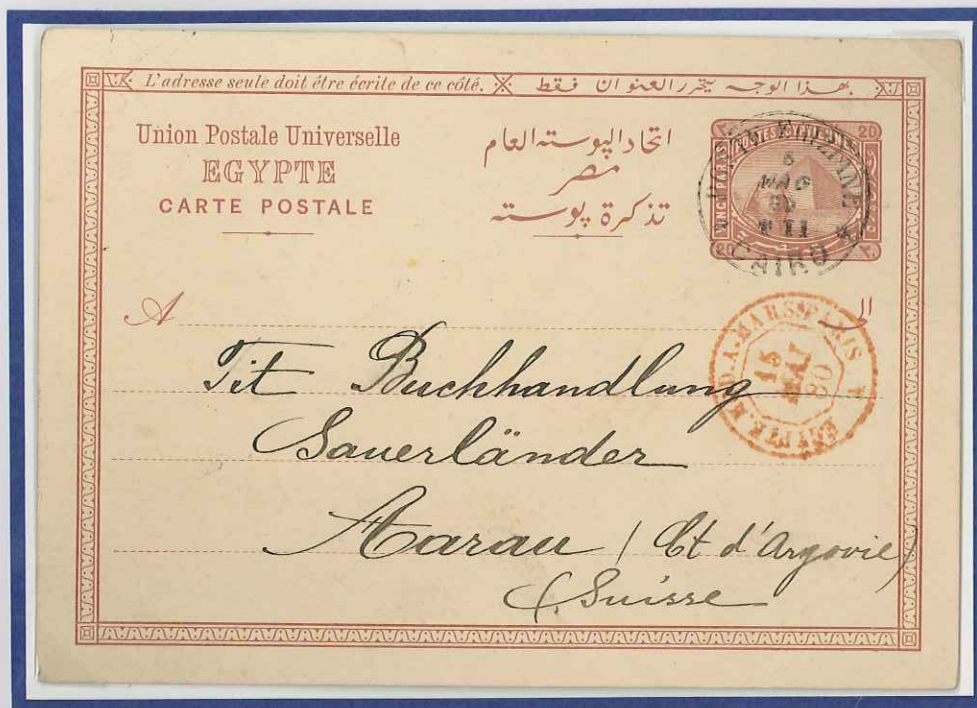 L'adresse seule doit être écrite de ce côté. بهذا الوجه يتحرر العنوان فقط
Union Postale Universelle
EGYPTE
CARTE POSTALE
اتحاد البوسته العام
مصر
تذكرة بوسته
20
20
CAIRO
A
الى
PARIS
15
MAI
80
Tit Buchhandlung
Sauerländer
Aarau (Ct d'Argovie)
(Suisse